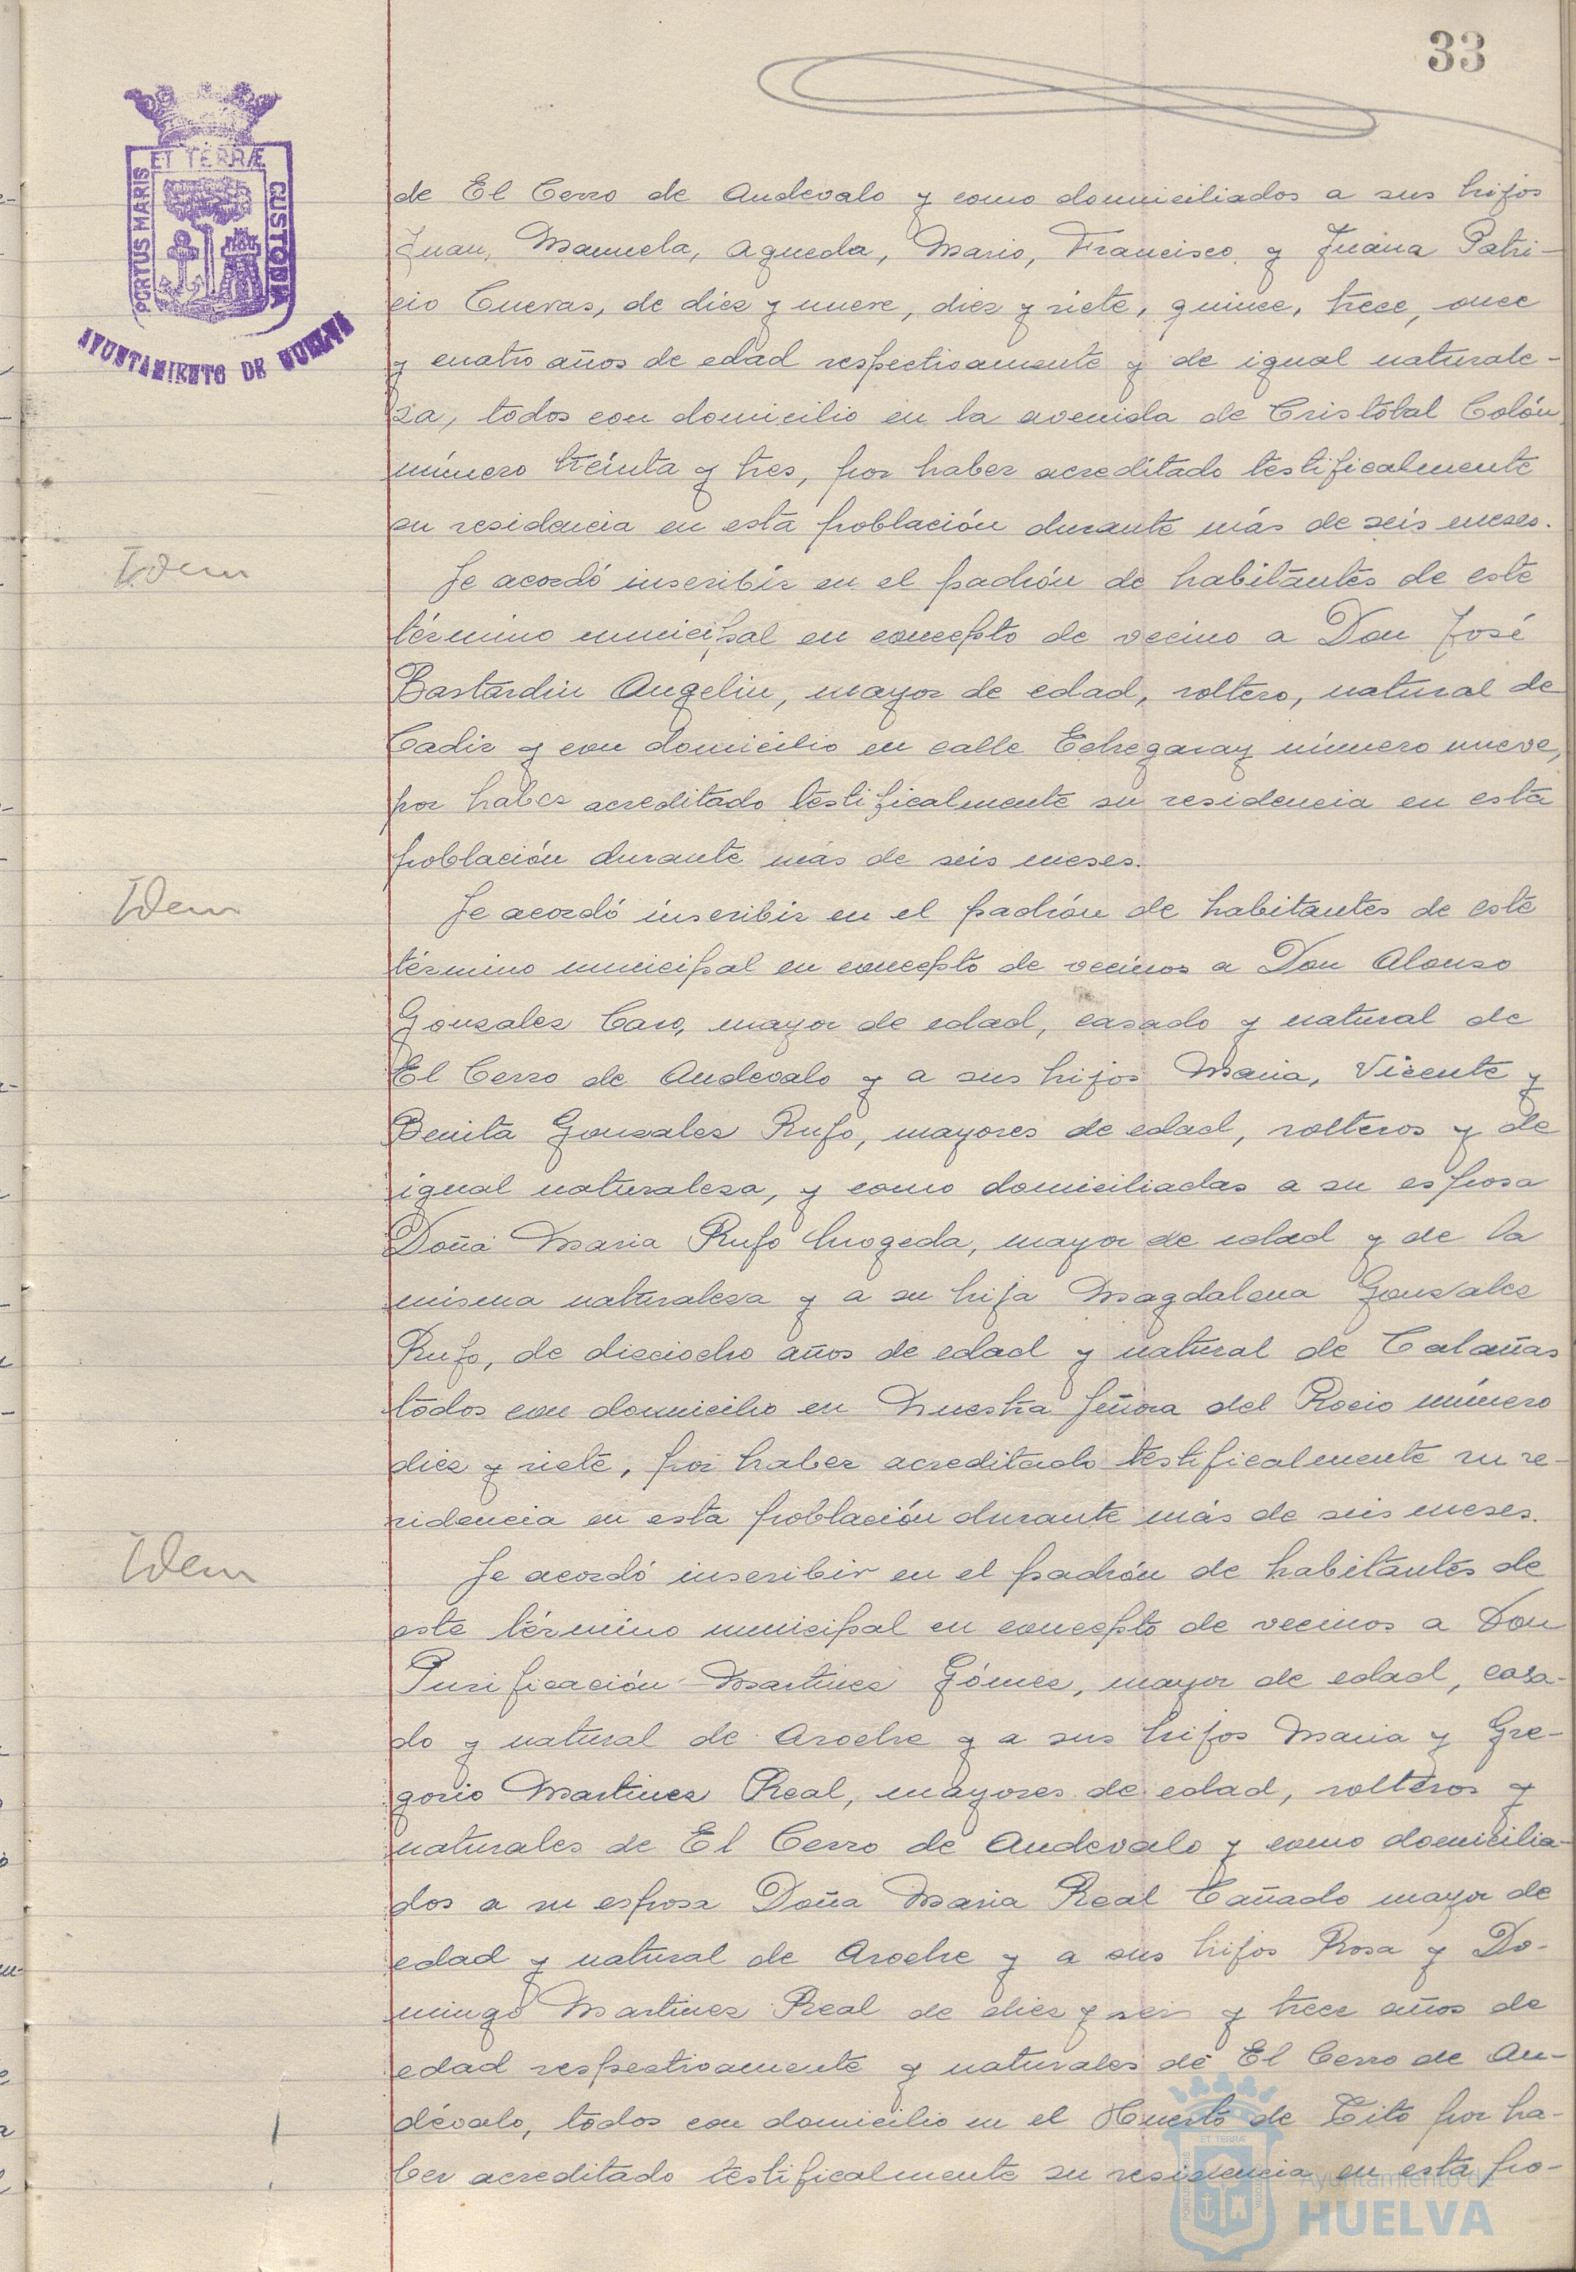 33
ET TERRÆ
PORTUS MARIS
CUSTODIA
AYUNTAMIENTO DE HUELVA
de El Cerro de Andevalo y como domiciliados a sus hijos
Juan, Manuela, Agueda, Mario, Francisco y Juana Patri-
cio Cuevas, de diez y nueve, diez y siete, quince, trece, once
y cuatro años de edad respectivamente y de igual naturale-
za, todos con domicilio en la avenida de Cristóbal Colón
número treinta y tres, por haber acreditado testificalmente
su residencia en esta población durante más de seis meses.
Idem
Se acordó inscribir en el padrón de habitantes de este
término municipal en concepto de vecino a Don José
Bastardin Angelin, mayor de edad, soltero, natural de
Cadiz y con domicilio en calle Echegaray número nueve,
por haber acreditado testificalmente su residencia en esta
población durante más de seis meses.
Idem
Se acordó inscribir en el padrón de habitantes de este
término municipal en concepto de vecinos a Don Alonso
Gonzalez Caro, mayor de edad, casado y natural de
El Cerro de Andevalo y a sus hijos Maria, Vicente y
Benita Gonzalez Rufo, mayores de edad, solteros y de
igual naturaleza, y como domiciliadas a su esposa
Doña Maria Rufo mayor de edad y de la
misma naturaleza y a su hija Magdalena Gonzalez
Rufo, de dieciocho años de edad y natural de Calañas
todos con domicilio en Nuestra Señora del Rocio número
diez y siete, por haber acreditado testificalmente su re-
sidencia en esta población durante más de seis meses.
Idem
Se acordó inscribir en el padrón de habitantes de
este término municipal en concepto de vecinos a Don
Purificación Martinez Gómez, mayor de edad, casa-
do y natural de Aroche y a sus hijos Maria y Gre-
gorio Martinez Real, mayores de edad, solteros y
naturales de El Cerro de Andevalo y como domicilia-
dos a su esposa Doña Maria Real Cañado mayor de
edad y natural de Aroche y a sus hijos Rosa y Do-
mingo Martinez Real de diez y seis y trece años de
edad respectivamente y naturales de El Cerro de An-
dévalo, todos con domicilio en el Huerto de Tito por ha-
ber acreditado testificalmente su residencia en esta po-
Ayuntamiento de
HUELVA